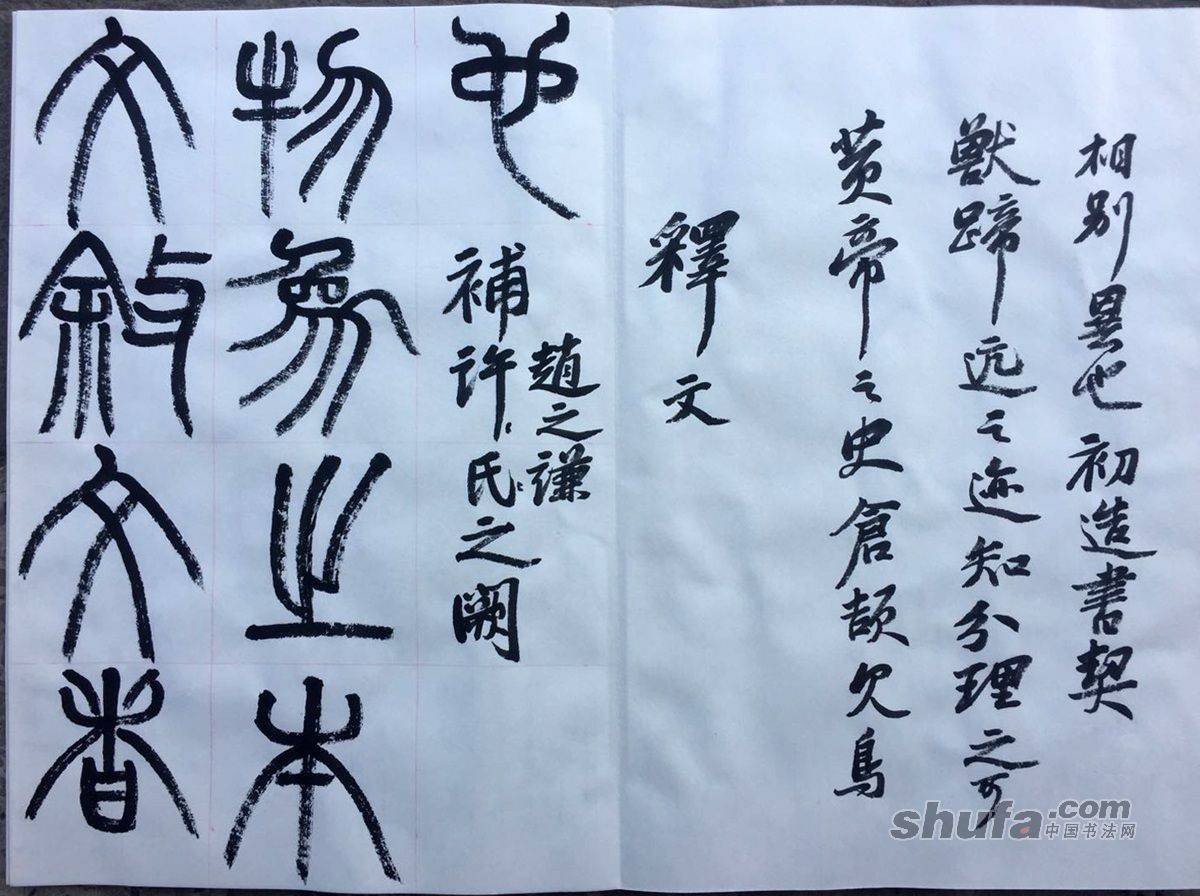 文敘文者
物象之本
也
補許氏之闕
趙之謙
釋文
黄帝之史倉頡欠鳥
獸蹄远之迹知分理之可
相别異也初造書契
shufa.com
中国书法网